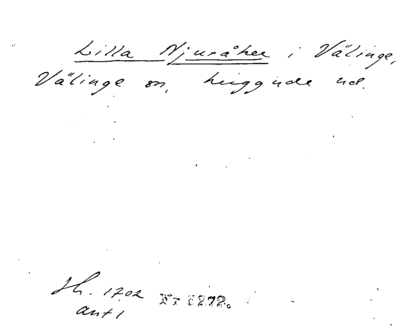 Lilla Njuråker i Välinge,
Välinge sn, Luggude hd.
Jh. 1702 Nr 6272.
ant 1